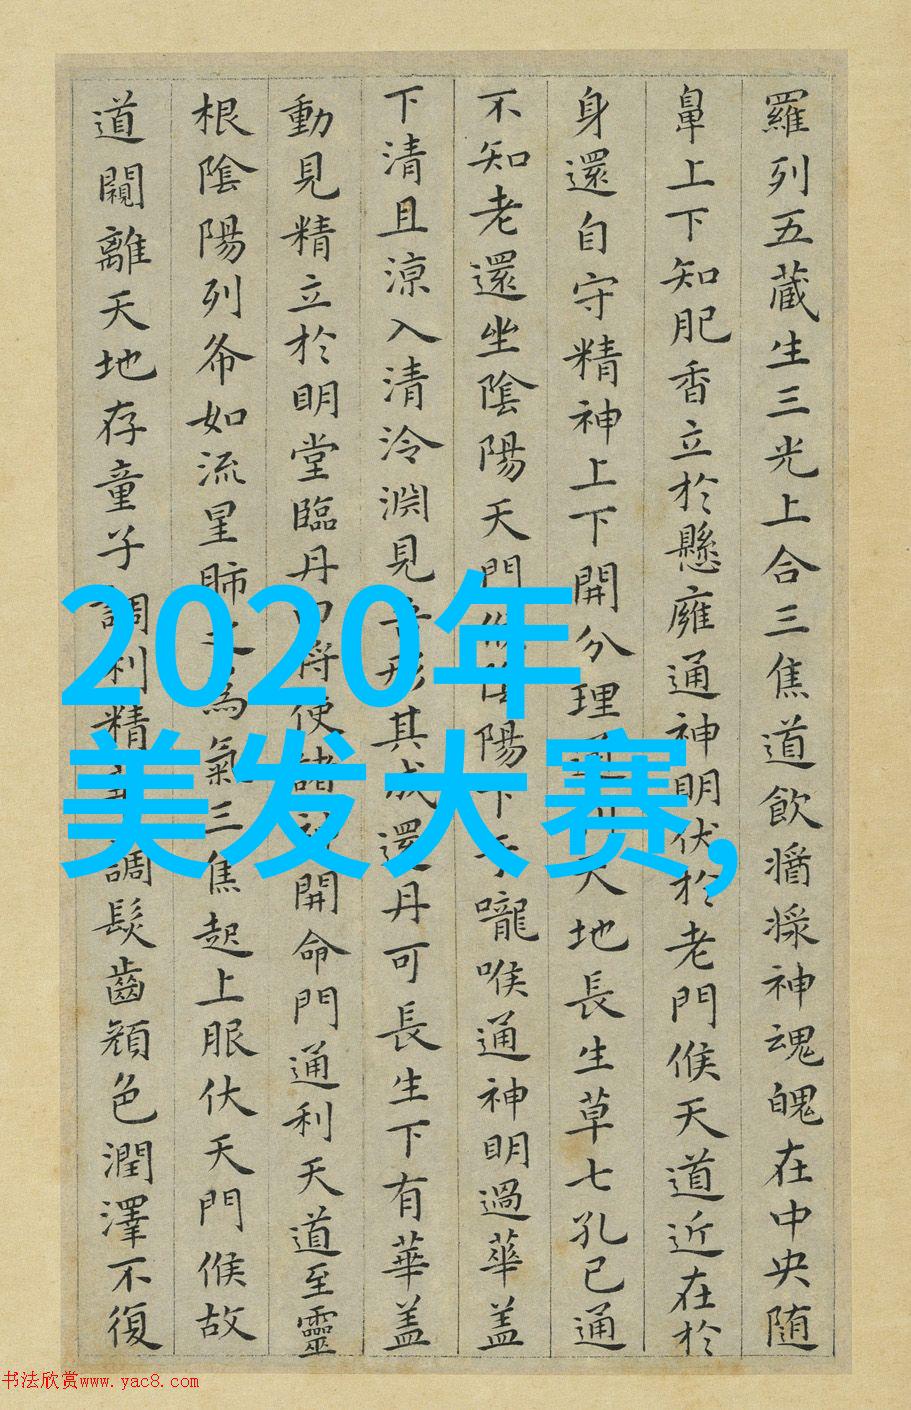 羅列五藏生三光上合三焦道飲醬漿神魂魄在中央随
鼻上下知肥香立於懸癕通神明伏於老門候天道近在於
身還自守精神上下開分理天地長生草七孔已通
不知老還坐陰陽天門候陰陽下于嚨喉通神明過華盖
下清且涼入清泠淵見吾形其成還丹可長生下有華盖
動見精立於明堂臨丹田将使諸神開命門通利天道至靈
根陰陽列布如流星肺之為氣三焦起上服伏天門候故
道闚離天地存童子調利精調髮齒顔色潤澤不復
2020年
美发大赛,
书法欣赏www.yac8.com